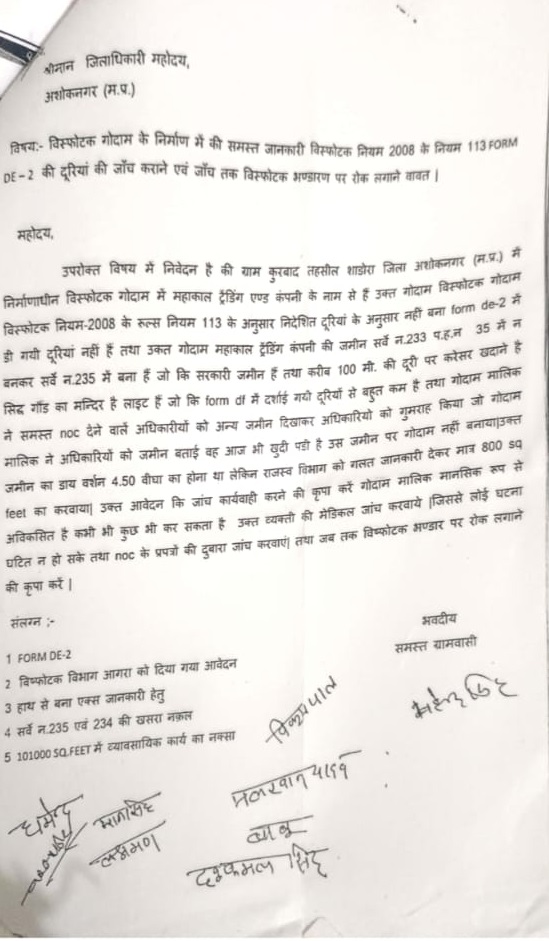 श्रीमान जिलाधिकारी महोदय,
अशोकनगर (म.प्र.)
विषय:- विस्फोटक गोदाम के निर्माण में की समस्त जानकारी विस्फोटक नियम 2008 के नियम 113 FORM
DE – 2 की दूरियां की जाँच कराने एवं जाँच तक विस्फोटक भण्डारण पर रोक लगाने वावत |
महोदय,
उपरोक्त विषय में निवेदन है की ग्राम कुरवाद तहसील शाडोरा जिला अशोकनगर (म.प्र.) में
निर्माणाधीन विस्फोटक गोदाम में महाकाल ट्रेंडिंग एण्ड कंपनी के नाम से हैं उक्त गोदाम विस्फोटक गोदाम
विस्फोटक नियम-2008 के रुल्स नियम 113 के अनुसार निदेशित दूरियां के अनुसार नहीं बना form de-2 में
डी गयी दूरियां नहीं हैं तथा उकत गोदाम महाकाल ट्रेंडिंग कंपनी की जमीन सर्वे न.233 प.ह.न 35 में न
बनकर सर्वे न.235 में बना हैं जो कि सरकारी जमीन हैं तथा करीब 100 मी. की दूरी पर करेसर खदाने है
सिद्ध गाँड का मन्दिर है लाइट हैं जो कि form df में दर्शाई गयी दूरियों से बहुत कम है तथा गोदाम मालिक
ने समस्त noc देने वालें अधिकारीयों को अन्य जमीन दिखाकर अधिकारियो को गुमराह किया जो गोदाम
मालिक ने अधिकारियों को जमीन बताई वह आज भी खुदी पडी है उस जमीन पर गोदाम नहीं बनाया|उक्त
जमीन का डाय वर्शन 4.50 वीघा का होना था लेकिन राजस्व विभाग को गलत जानकारी देकर मात्र 800 sq
feet का करवाया| उक्त आवेदन कि जांच कार्यवाही करने की कृपा करें गोदाम मालिक मानसिक रूप से
अविकसित है कभी भी कुछ भी कर सकता है उक्त व्यक्ती की मेडिकल जांच करवाये |जिससे लोई घटना
घटित न हो सके तथा noc के प्रपत्रों की दुबारा जांच करवाएं| तथा जब तक विष्फोटक भण्डार पर रोक लगाने
की कृपा करें |
संलग्न :-
भवदीय
समस्त ग्रामवासी
1 FORM DE-2
2 विष्फोटक विभाग आगरा को दिया गया आवेदन
3 हाथ से बना एक्स जानकारी हेतु
4 सर्वे न.235 एवं 234 की खसरा नक़ल
5 101000 SQ.FEET में व्यावसायिक कार्य का नक्सा
विक्रमपाल
महेन्द्र सिंह
धर्मेन्द्र
मानसिंह
लक्ष्मण
बाबू
सिंह